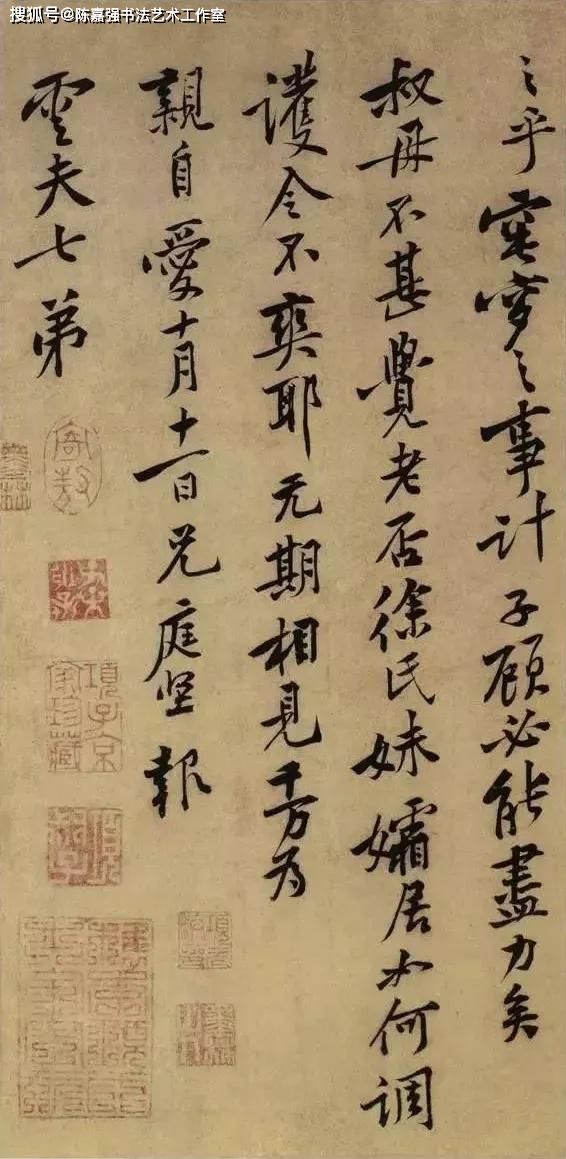 搜狐号@陈嘉强书法艺术工作室
之乎窀穸之事计子顾必能盡力矣
叔母不甚覺老否徐氏妹孀居如何调
護令不爽耶无期相見千万为
親自愛十月十一日兄庭坚報
雲夫七弟
項子京家珍藏